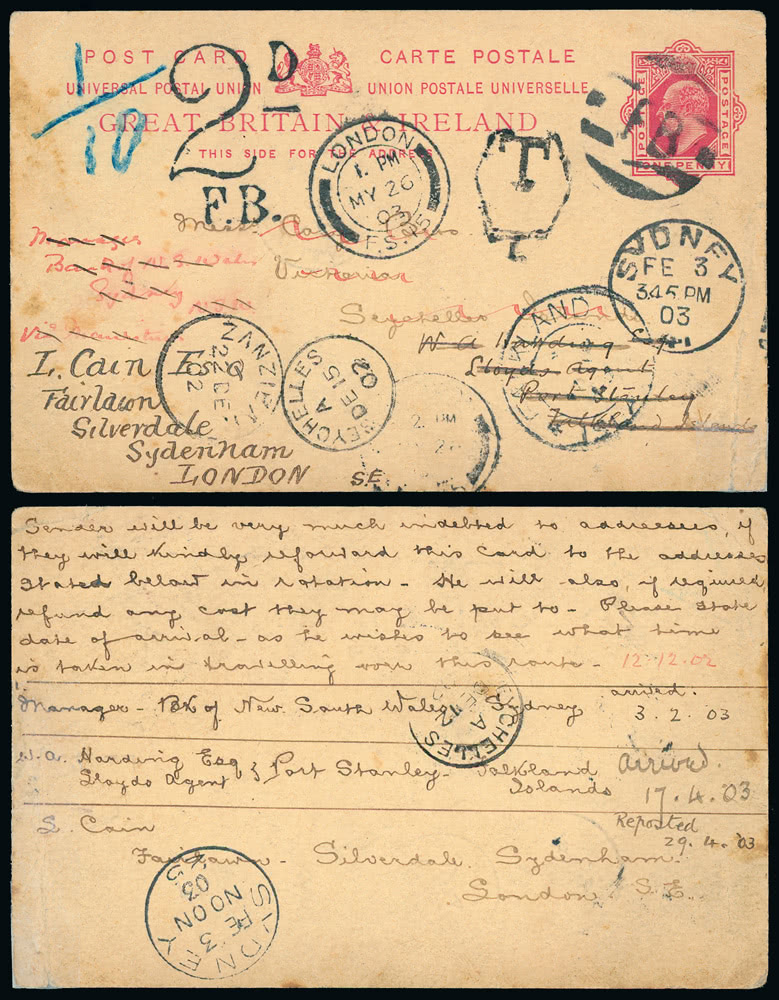 POST CARD CARTE POSTALE
UNIVERSAL POSTAL UNION UNION POSTALE UNIVERSELLE
GREAT BRITAIN IRELAND
THIS SIDE FOR THE ADDRESS
POSTAGE POSTAGE
ONE PENNY
1/10
2D
F.B.
LONDON
1. PM
MY 26
03
F.S. 15
T
1
F.B.
SYDNEY
FE 3
3.45 PM
03
Mess
Victoria
Seychelles
Manager
Bank of N S Wales
Sydney
W A Harding Esq
Lloyds Agent
Port Stanley
Falkland Islands
L. Cain Esq
Fairlawn
Silverdale
Sydenham
LONDON
S.E.
ZANZIBAR
22 DE
SEYCHELLES
A
DE 15
02
2. PM
Sender will be very much indebted to addressees, if
they will kindly reforward this card to the addresses
stated below in rotation - He will also, if required,
refund any cost they may be put to - Please state
date of arrival - as he wishes to see what time
is taken in travelling this route - 12.12.02
Manager - Bk of New South Wales - Sydney arrived. 3.2.03
SEYCHELLES
A
W.A. Harding Esq
Lloyds Agent } Port Stanley - Falkland Islands
arrived.
17.4.03
Reposted
29.4.03
L. Cain
Fairlawn - Silverdale. Sydenham.
London S.E.
SYDNEY
FE 3
NOON
03